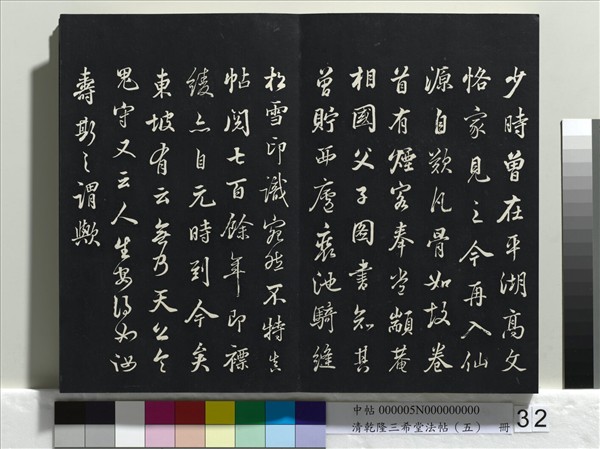 少時曾在平湖高文
恪家見之今再入仙
源自歎凡骨如故卷
首有煙客奉常顓菴
相國父子圖書知其
曾貯西廬裹池騎縫
松雪印識宛然不特真
帖閱七百餘年即褾
綾亦自元時到今矣
東坡有云無乃天公令
鬼守又云人生安得如汝
壽斯之謂歟
中帖 000005N000000000
清乾隆三希堂法帖（五） 冊 32